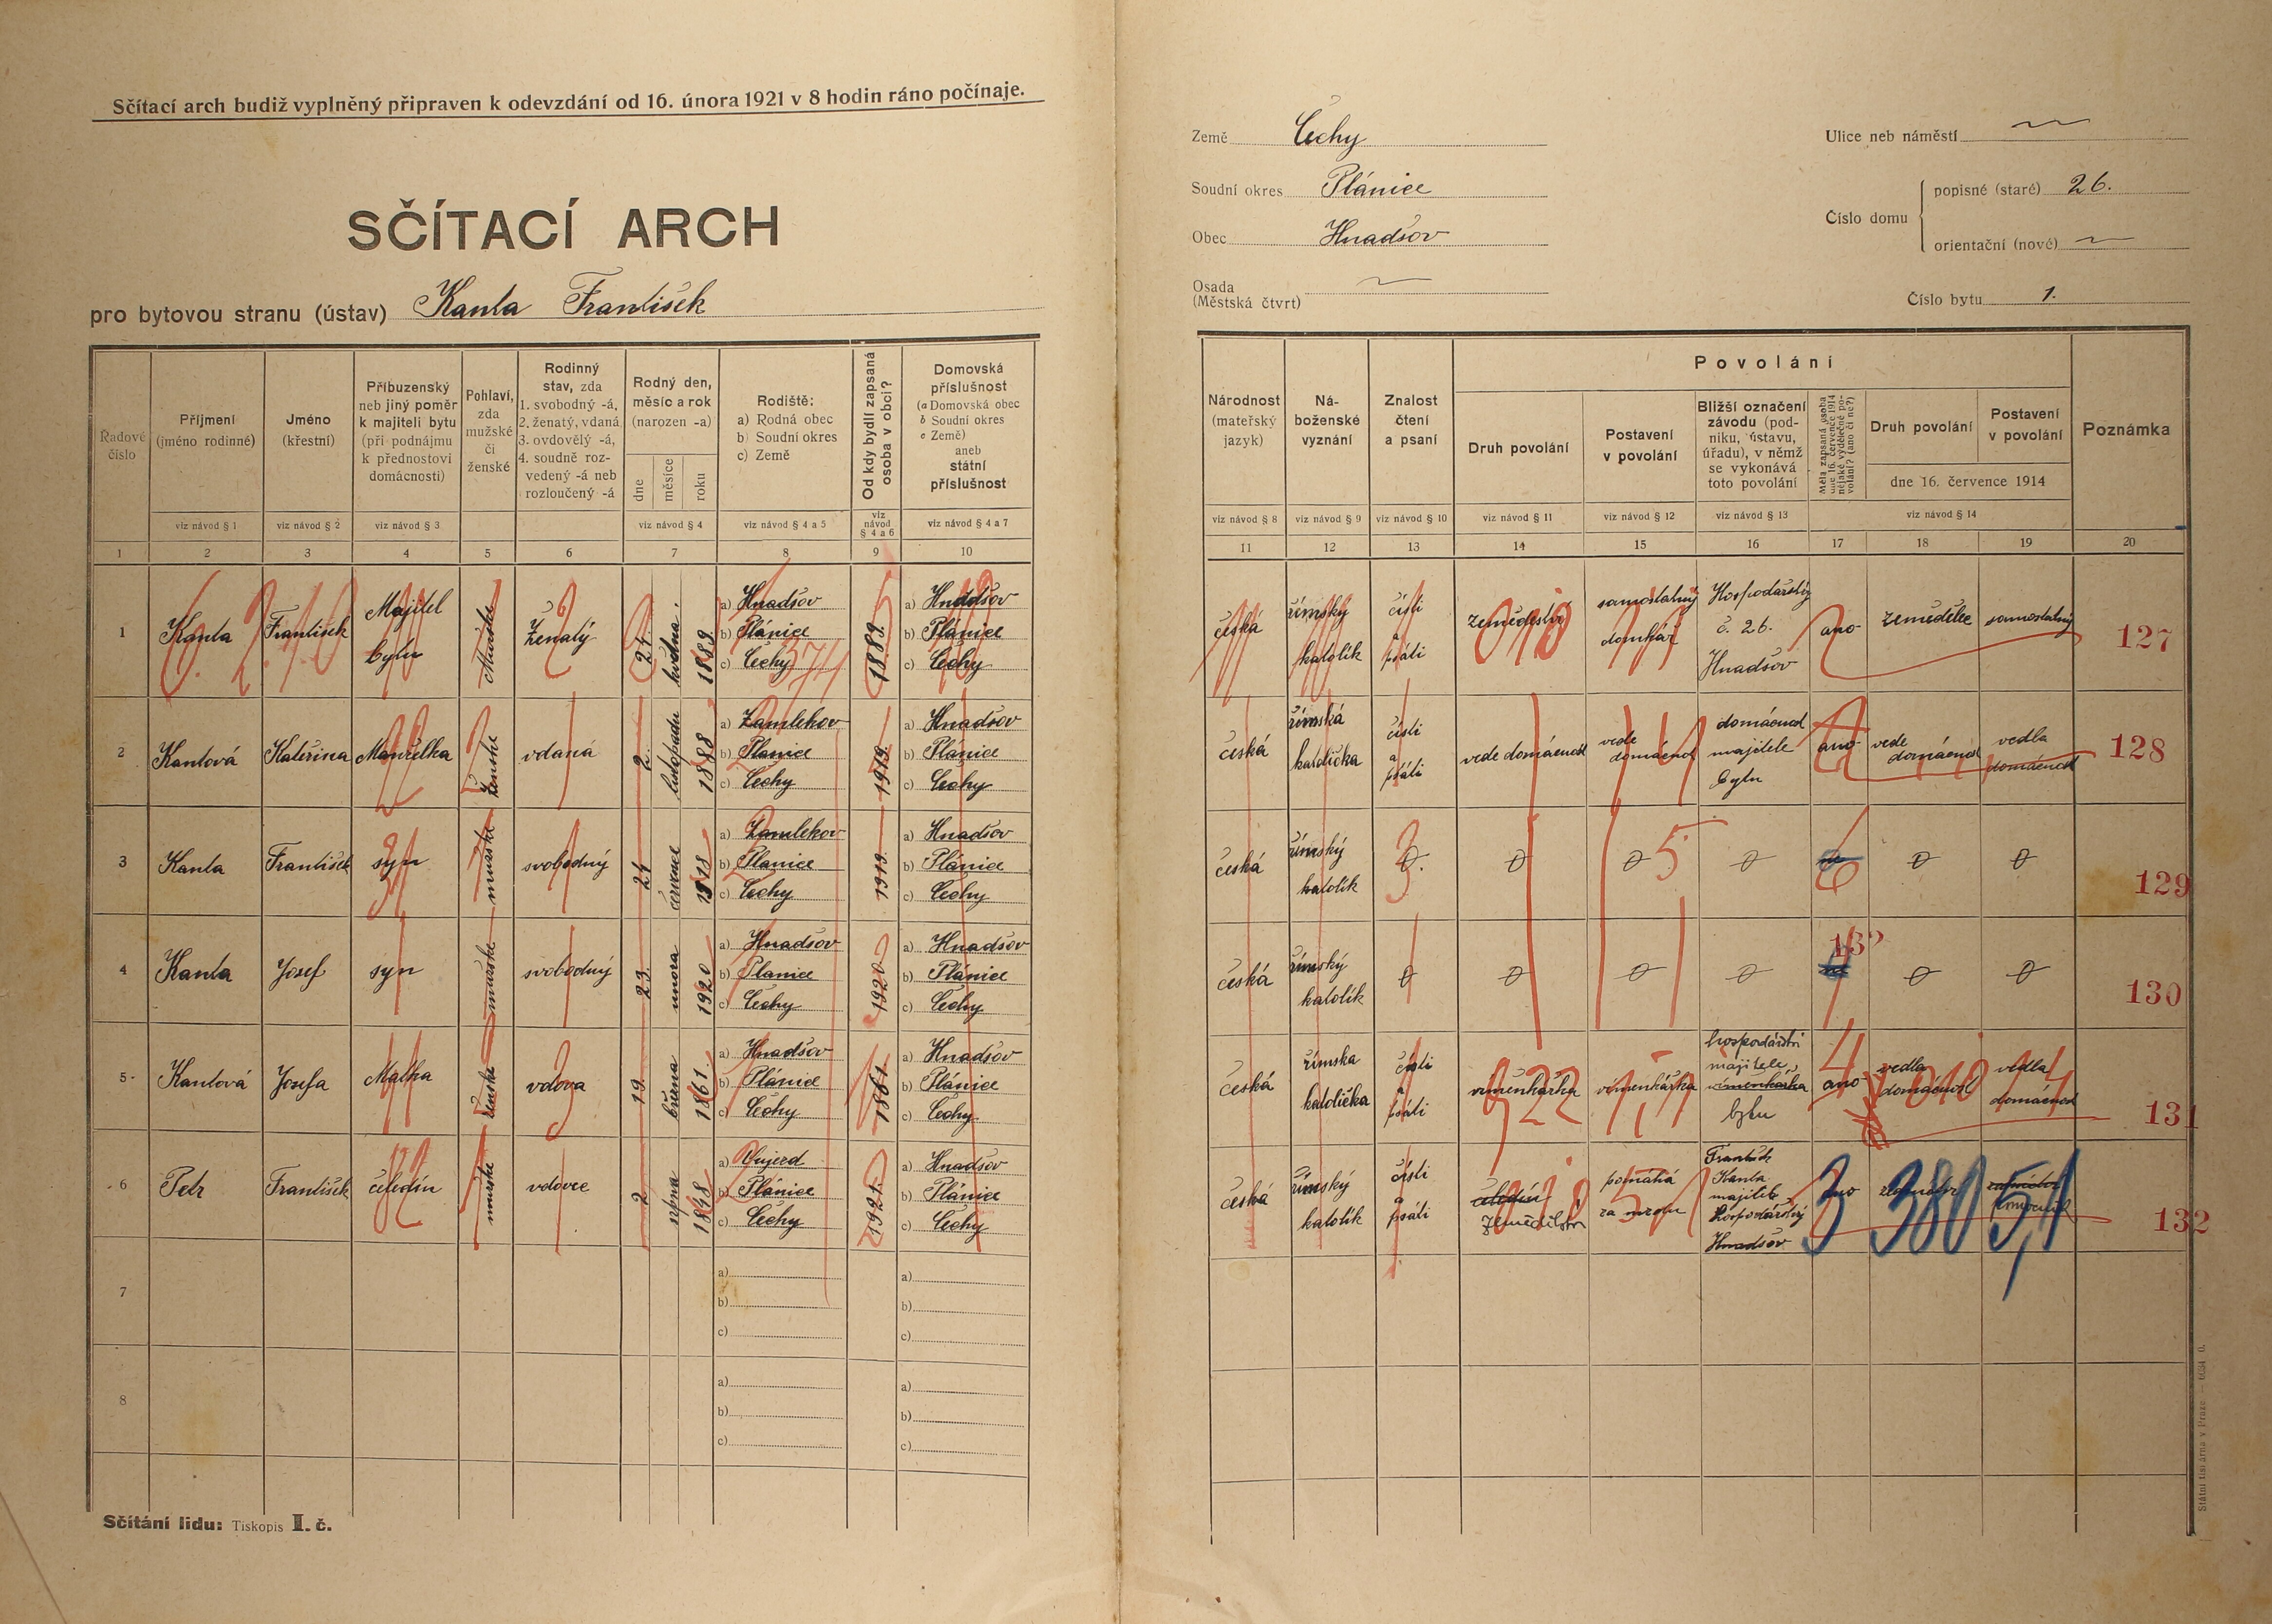 Sčítací arch budiž vyplněný připraven k odevzdání od 16. února 1921 v 8 hodin ráno počínaje.
SČÍTACÍ ARCH
pro bytovou stranu (ústav) Kanta František
Země Čechy
Soudní okres Plánice
Obec Hnadšov
Osada
(Městská čtvrt)
Ulice neb náměstí
Číslo domu
popisné (staré) 26.
orientační (nové)
Číslo bytu 1.
Řadové
číslo
Příjmení
(jméno rodinné)
viz návod § 1
Jméno
(křestní)
viz návod § 2
Příbuzenský
neb jiný poměr
k majiteli bytu
(při podnájmu
k přednostovi
domácnosti)
viz návod § 3
Pohlaví,
zda
mužské
či
ženské
Rodinný
stav, zda
1. svobodný -á,
2. ženatý, vdaná
3. ovdovělý -á,
4. soudně roz-
vedený -á neb
rozloučený -á
Rodný den,
měsíc a rok
(narozen -a)
dne
měsíce
roku
viz návod § 4
Rodiště:
a) Rodná obec
b) Soudní okres
c) Země
viz návod § 4 a 5
Od kdy bydlí zapsaná
osoba v obci?
viz
návod
§ 4 a 6
Domovská
příslušnost
(a Domovská obec
b Soudní okres
c Země)
aneb
státní
příslušnost
viz návod § 4 a 7
Národnost
(mateřský
jazyk)
viz návod § 8
Ná-
boženské
vyznání
viz návod § 9
Znalost
čtení
a psaní
viz návod § 10
Povolání
Druh povolání
viz návod § 11
Postavení
v povolání
viz návod § 12
Bližší označení
závodu (pod-
niku, ústavu,
úřadu), v němž
se vykonává
toto povolání
viz návod § 13
Měla zapsaná osoba
dne 16. července 1914
nějaké výdělečné po-
volání? (ano či ne?)
Druh povolání
Postavení
v povolání
dne 16. července 1914
viz návod § 14
Poznámka
1 2 3 4 5 6 7 8 9 10
11 12 13 14 15 16 17 18 19 20
1 Kanta František Majitel bytu mužské ženatý 24. května 1889
a) Hnadšov
b) Plánice
c) Čechy
1889
a) Hnadšov
b) Plánice
c) Čechy
česká římský katolík čísti a psáti zemědělství samostatný domkář Hospodářství č. 26. Hnadšov ano zemědělec samostatný 127
2 Kantová Kateřina Manželka ženské vdaná 2. listopadu 1888
a) Zamlekov
b) Plánice
c) Čechy
1919
a) Hnadšov
b) Plánice
c) Čechy
česká římská katolička čísti a psáti vede domácnost vede domácnost domácnost majitele bytu ano vede domácnost vedla domácnost 128
3 Kanta František syn mužské svobodný 24 červenec 1918
a) Zamlekov
b) Plánice
c) Čechy
1919
a) Hnadšov
b) Plánice
c) Čechy
česká římský katolík 0 0 0 0 0 0 129
4 Kanta Josef syn mužské svobodný 23. února 1920
a) Hnadšov
b) Plánice
c) Čechy
1920
a) Hnadšov
b) Plánice
c) Čechy
česká římský katolík 0 0 0 0 0 0 130
5 Kantová Josefa Matka ženské vdova 19. března 1861
a) Hnadšov
b) Plánice
c) Čechy
1861
a) Hnadšov
b) Plánice
c) Čechy
česká římska katolička čísti a psáti výměnkářka výměnkářka hospodářství majitele výměnkářka bytu ano vedla domácnost vedla domácnost 131
6 Petr František čeledín mužské vdovec 2 srpna 1848
a) Vujezd
b) Plánice
c) Čechy
1921
a) Hnadšov
b) Plánice
c) Čechy
česká římský katolík čísti a psáti čeledín zemědělství pomáhá za mzdu František Kanta majitele hospodářství Hnadšov ano 3 380 5,1 132
7
a)
b)
c)
a)
b)
c)
8
a)
b)
c)
a)
b)
c)
Sčítání lidu: Tiskopis I. č.